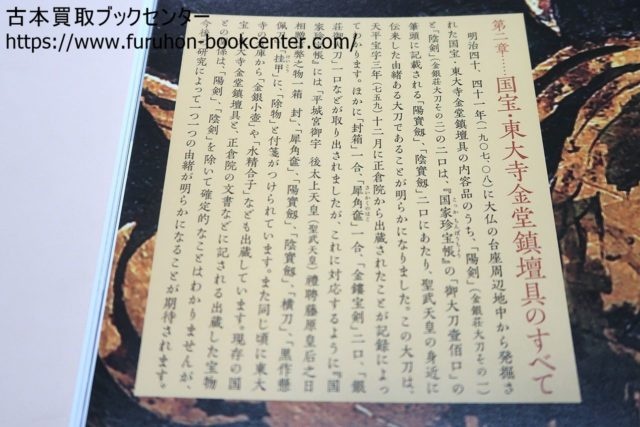 古本買取ブックセンター
https://www.furuhon-bookcenter.com/
第二章……国宝・東大寺金堂鎮壇具のすべて
明治四十、四十一年(一九〇七、〇八)に大仏の台座周辺地中から発掘さ
れた国宝・東大寺金堂鎮壇具の内容品のうち、「陽剣」(金銀荘大刀その一)
と「陰剣」(金銀荘大刀その二)の二口は、『国家珍宝帳』の「御大刀壹佰口」の
こっかちんぽうちょう
筆頭に記載される「陽寶劔」、「陰寶劔」二口にあたり、聖武天皇の身近に
伝来した由緒ある大刀であることが明らかになりました。この大刀は、
天平宝字三年(七五九)十二月に正倉院から出蔵されたことが記録によっ
てわかります。ほかに「封箱」一合、「犀角奩」一合、「金鏤宝剣」二口、「銀
さいかくのはこ
荘御大刀」一口などが取り出されましたが、これに対応するように『国
家珍宝帳』には「平城宮御宇 後太上天皇(聖武天皇)禮聘藤原皇后之日
相贈信幣之物一箱 封」、「犀角奩」、「陽寶劔」、「陰寶劔」、「横刀」、「黒作懸
佩刀」、「挂甲」に、「除物」と付箋がつけられています。また同じ頃に東大
けいこう
寺の庫から「金銀小壺」や「水精合子」なども出蔵しています。現存の国
宝・東大寺金堂鎮壇具と、正倉院の文書などに記される出蔵した宝物
との関係は、「陽剣」、「陰剣」を除いて確定的なことはわかりませんが、
今後の研究によって一つ一つの由緒が明らかになることが期待されます。